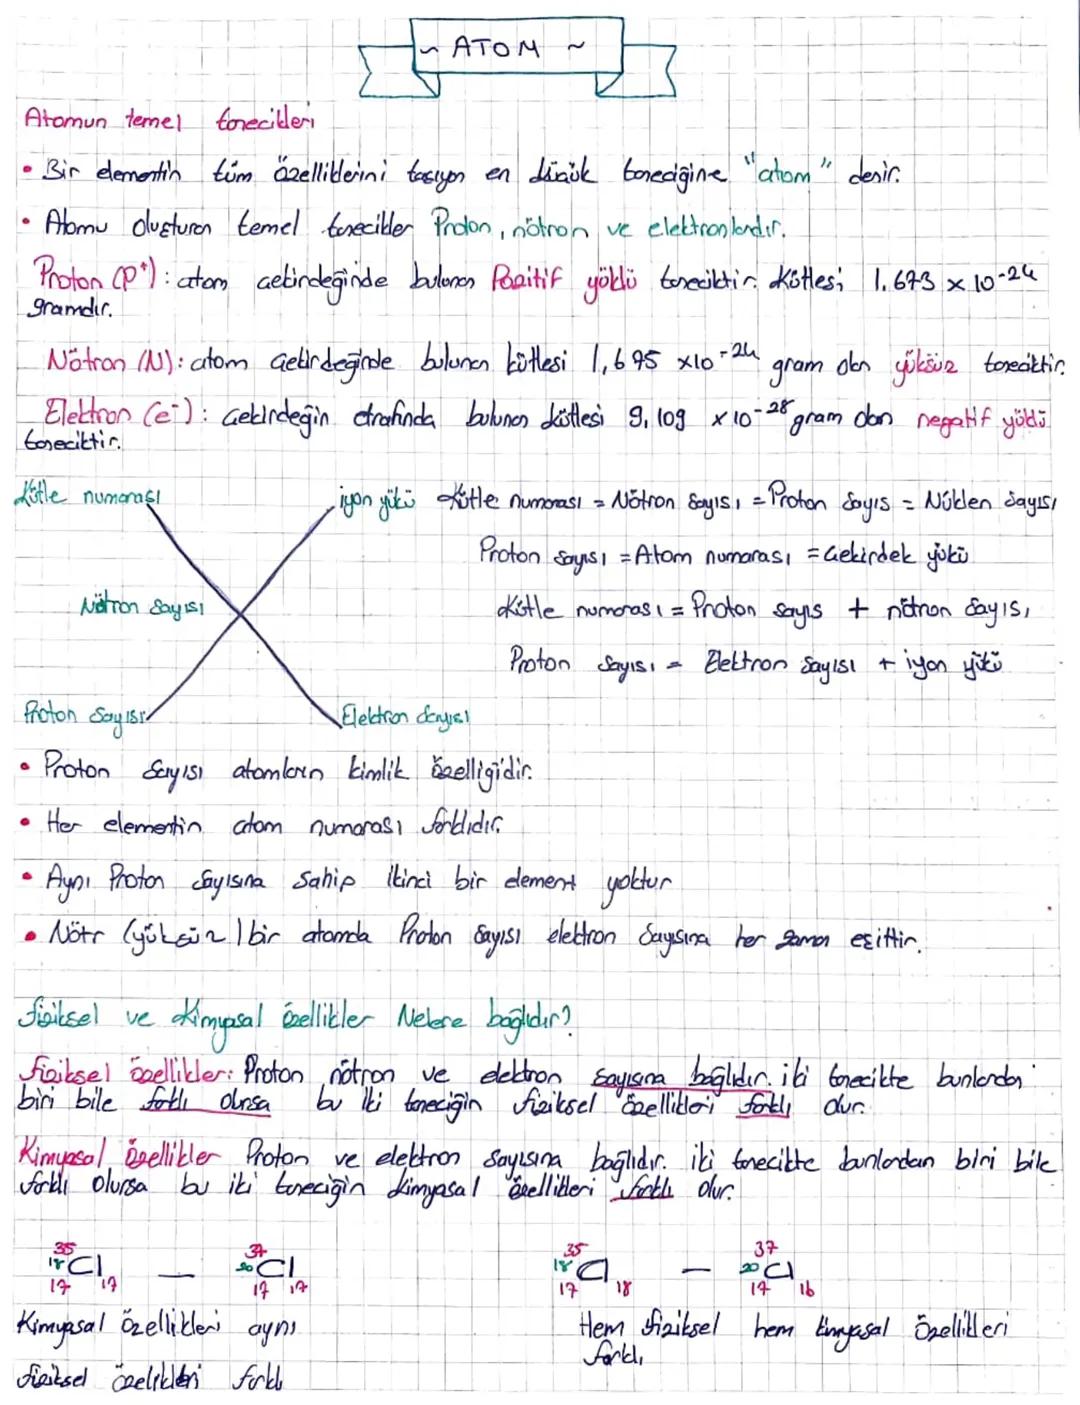 ~ ATOM ~
Atomun temel tanecikleri
• Bir elementin tüm özelliklerini taşıyan en düşük taneciğine "atom" denir.
• Atomu oluşturan temel tanecikler Proton, nötron ve elektronlardır.
Proton (p⁺): atom çekirdeğinde bulunan Pozitif yüklü taneciktir. Kütlesi 1.673 x 10⁻²⁴
gramdır.
Nötron (N): atom çekirdeğinde bulunan kütlesi 1,675 x10⁻²⁴ gram olan yüksüz taneciktir.
Elektron (e⁻): Çekirdeğin etrafında bulunan kütlesi 9,109 x 10⁻²⁸ gram olan negatif yüklü
taneciktir.
Kütle numarası
iyon yükü
Nötron Sayısı
Proton Sayısı
Elektron Sayısı
Kütle numarası = Nötron Sayısı = Proton Sayıs = Nüklen Sayısı
Proton Sayısı = Atom numarası = Çekirdek yükü
Kütle numarası = Proton sayıs + nötron Sayısı
Proton Sayısı = Elektron Sayısı + iyon yükü
• Proton Sayısı atomların kimlik özelliği'dir.
• Her elementin atom numarası farklıdır.
• Aynı Proton Sayısına Sahip ikinci bir element yoktur
• Nötr (yüksüz) bir atomda Proton Sayısı elektron Sayısına her zaman eşittir.
fiziksel ve Kimyasal özellikler Nelere bağlıdır?
fiziksel özellikler: Proton, nötron ve elektron sayısına bağlıdır. iki tanecikte bunlardan
biri bile farklı olursa bu iki taneciğin fiziksel özellikleri farklı olur.
Kimyasal özellikler Proton ve elektron Sayısına bağlıdır. iki tanecikte bunlardan biri bile
farklı olursa bu iki taneciğin kimyasal özellikleri farklı olur.
35 37 35 37
18 Cl — 20 Cl 18 Cl — 20 Cl
17 17 17 17 17 18 17 16
Kimyasal özellikleri aynı
fiziksel özelikleri farklı
Hem fiziksel hem kimyasal Özellikleri
farklı